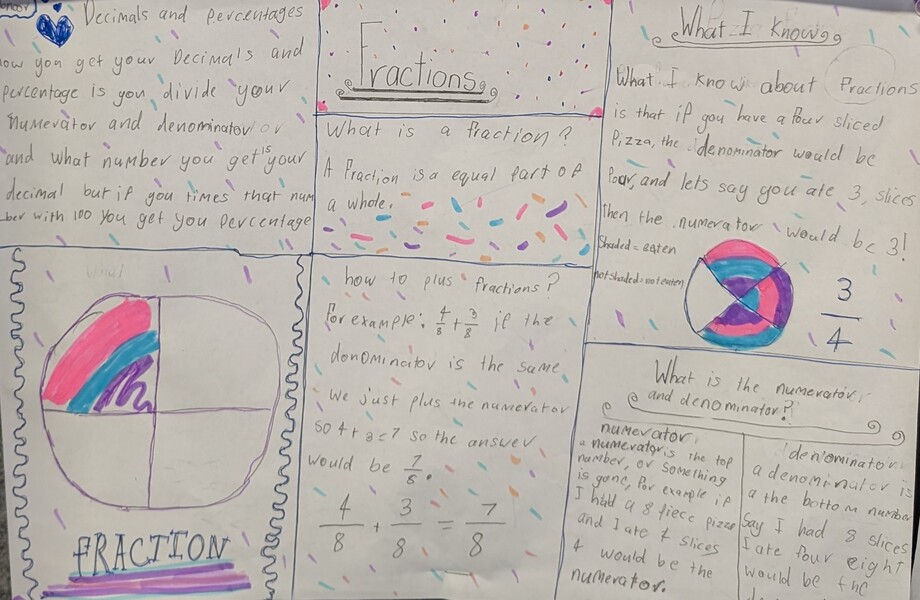 Decimals and percentages
how you get your Decimals and
percentage is you divide your
numerator and denominator or
and what number you get is your
decimal but if you times that num
ber with 100 You get you percentage
FRACTION
Fractions
What is a fraction?
A Fraction is a equal part of
a whole.
how to plus fractions?
For example: 4/8 + 3/8 if the
denominator is the same
We just plus the numerator
so 4 + 3 = 7 so the answer
would be 7/8.
4/8 + 3/8 = 7/8
What I Know
What I know about Fractions
is that if you have a four sliced
Pizza, the denominator would be
four, and lets say you ate 3, slices
then the numerator would be 3!
Shaded = eaten
not shaded = not eaten
3/4
What is the numerator
and denominator?
numerator:
a numerator is the top
number, or something
is gone, for example if
I had a 8 piece pizza
and I ate 4 slices
4 would be the
numerator.
denominator:
a denominator is
a the bottom number
Say I had 8 slices
I ate four eight
would be the